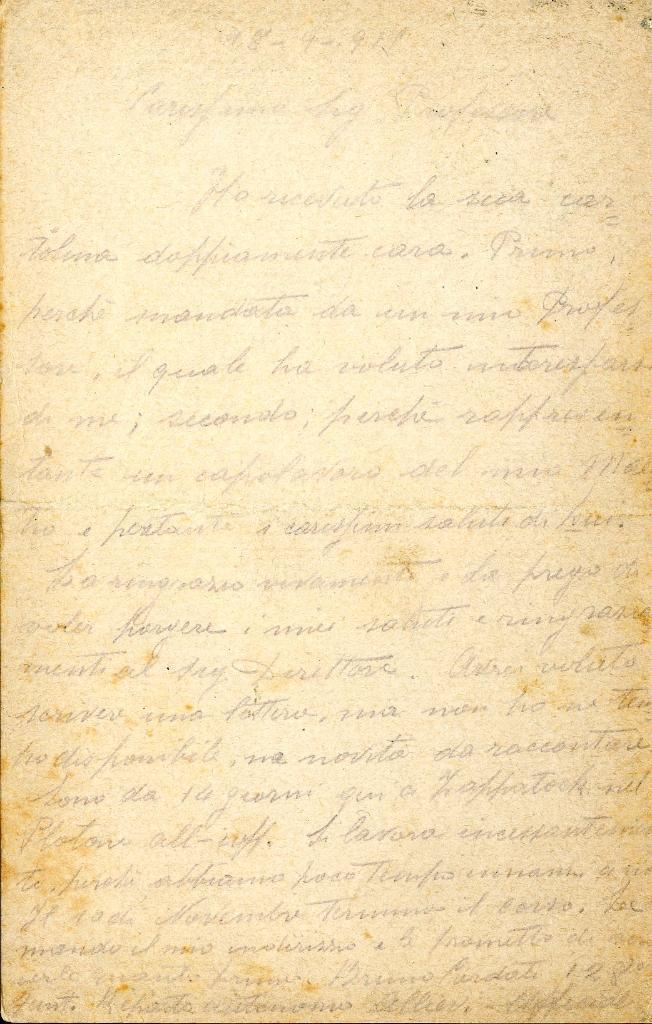 18-9-91
Carissimo Sig Professore
Ho ricevuto la sua car-
tolina doppiamente cara. Primo,
perchè mandata da un mio Profes-
sore, il quale ha voluto interessarsi
di me; secondo; perchè rappresen-
tante un capolavoro del mio
e portante i carissimi saluti di Lui.
La ringrazio vivamente e La prego di
voler porgere i miei saluti e ringrazia
menti al Sig Direttore. Avrei voluto
scriver una lettera, ma non ho ne tem-
po disponibile, ne novità da raccontare
Sono da 14 giorni qui a nel
Ploton all-uff. Si lavora incessantemen
te, perchè abbiamo poco tempo innanzi a noi
Il 10 di Novembre termina il corso. Le
mando il mio indirizzo e le prometto di
Bruno 128
Reparto autonomo